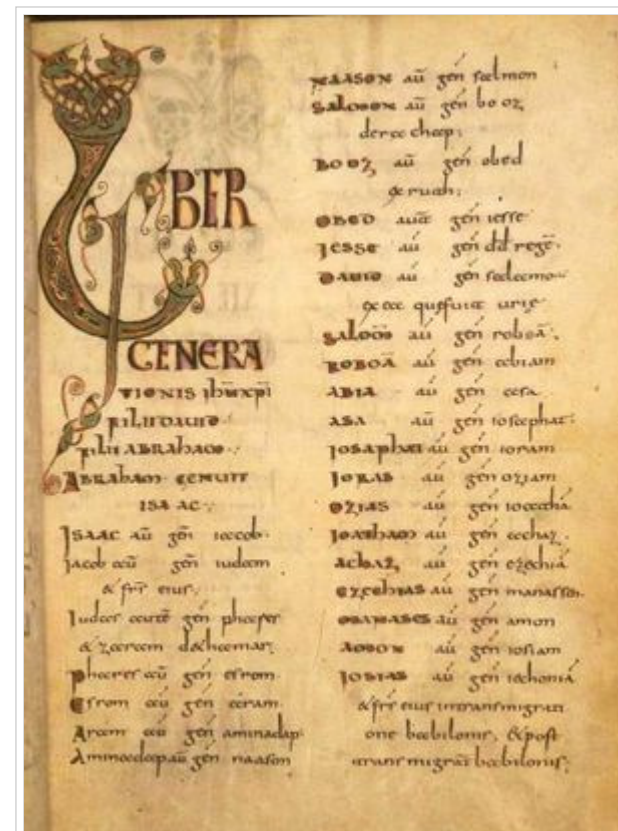 LIBER
GENERA
TIONIS ihu xpi
FILII DAVID
FILII ABRAHAM
ABRAHAM GENUIT
ISAAC
ISAAC aū gēn iacob
Iacob aū gēn iudam
& frs eius;
Iudas autē gēn phares
& zaram dethamar;
Phares aū gēn esrom
Esrom aū gēn aram
Aram aū gēn aminadap
Aminadap aū gēn naason
NAASON aū gēn salmon
SALOMON aū gēn booz
de rachap;
BOOZ aū gēn obed
ex ruth;
OBED autē gēn iesse
IESSE aū gēn dd regē
DAUID aū gēn salamo
ex ea que fuit urie
SALOM aū gēn roboā
ROBOĀ aū gēn abiam
ABIA aū gēn asa
ASA aū gēn iosaphat
IOSAPHAT aū gēn ioram
IORAS aū gēn oziam
OZIAS aū gēn ioathā
IOATHAM aū gēn achaz
ACHAZ aū gēn ezechiā
EZECHIAS aū gēn manassen
MANASSES aū gēn amon
AMON aū gēn iosiam
IOSIAS aū gēn iechoniā
& frs eius in transmigrati
one babilonis, & post
transmigrat babilonis;